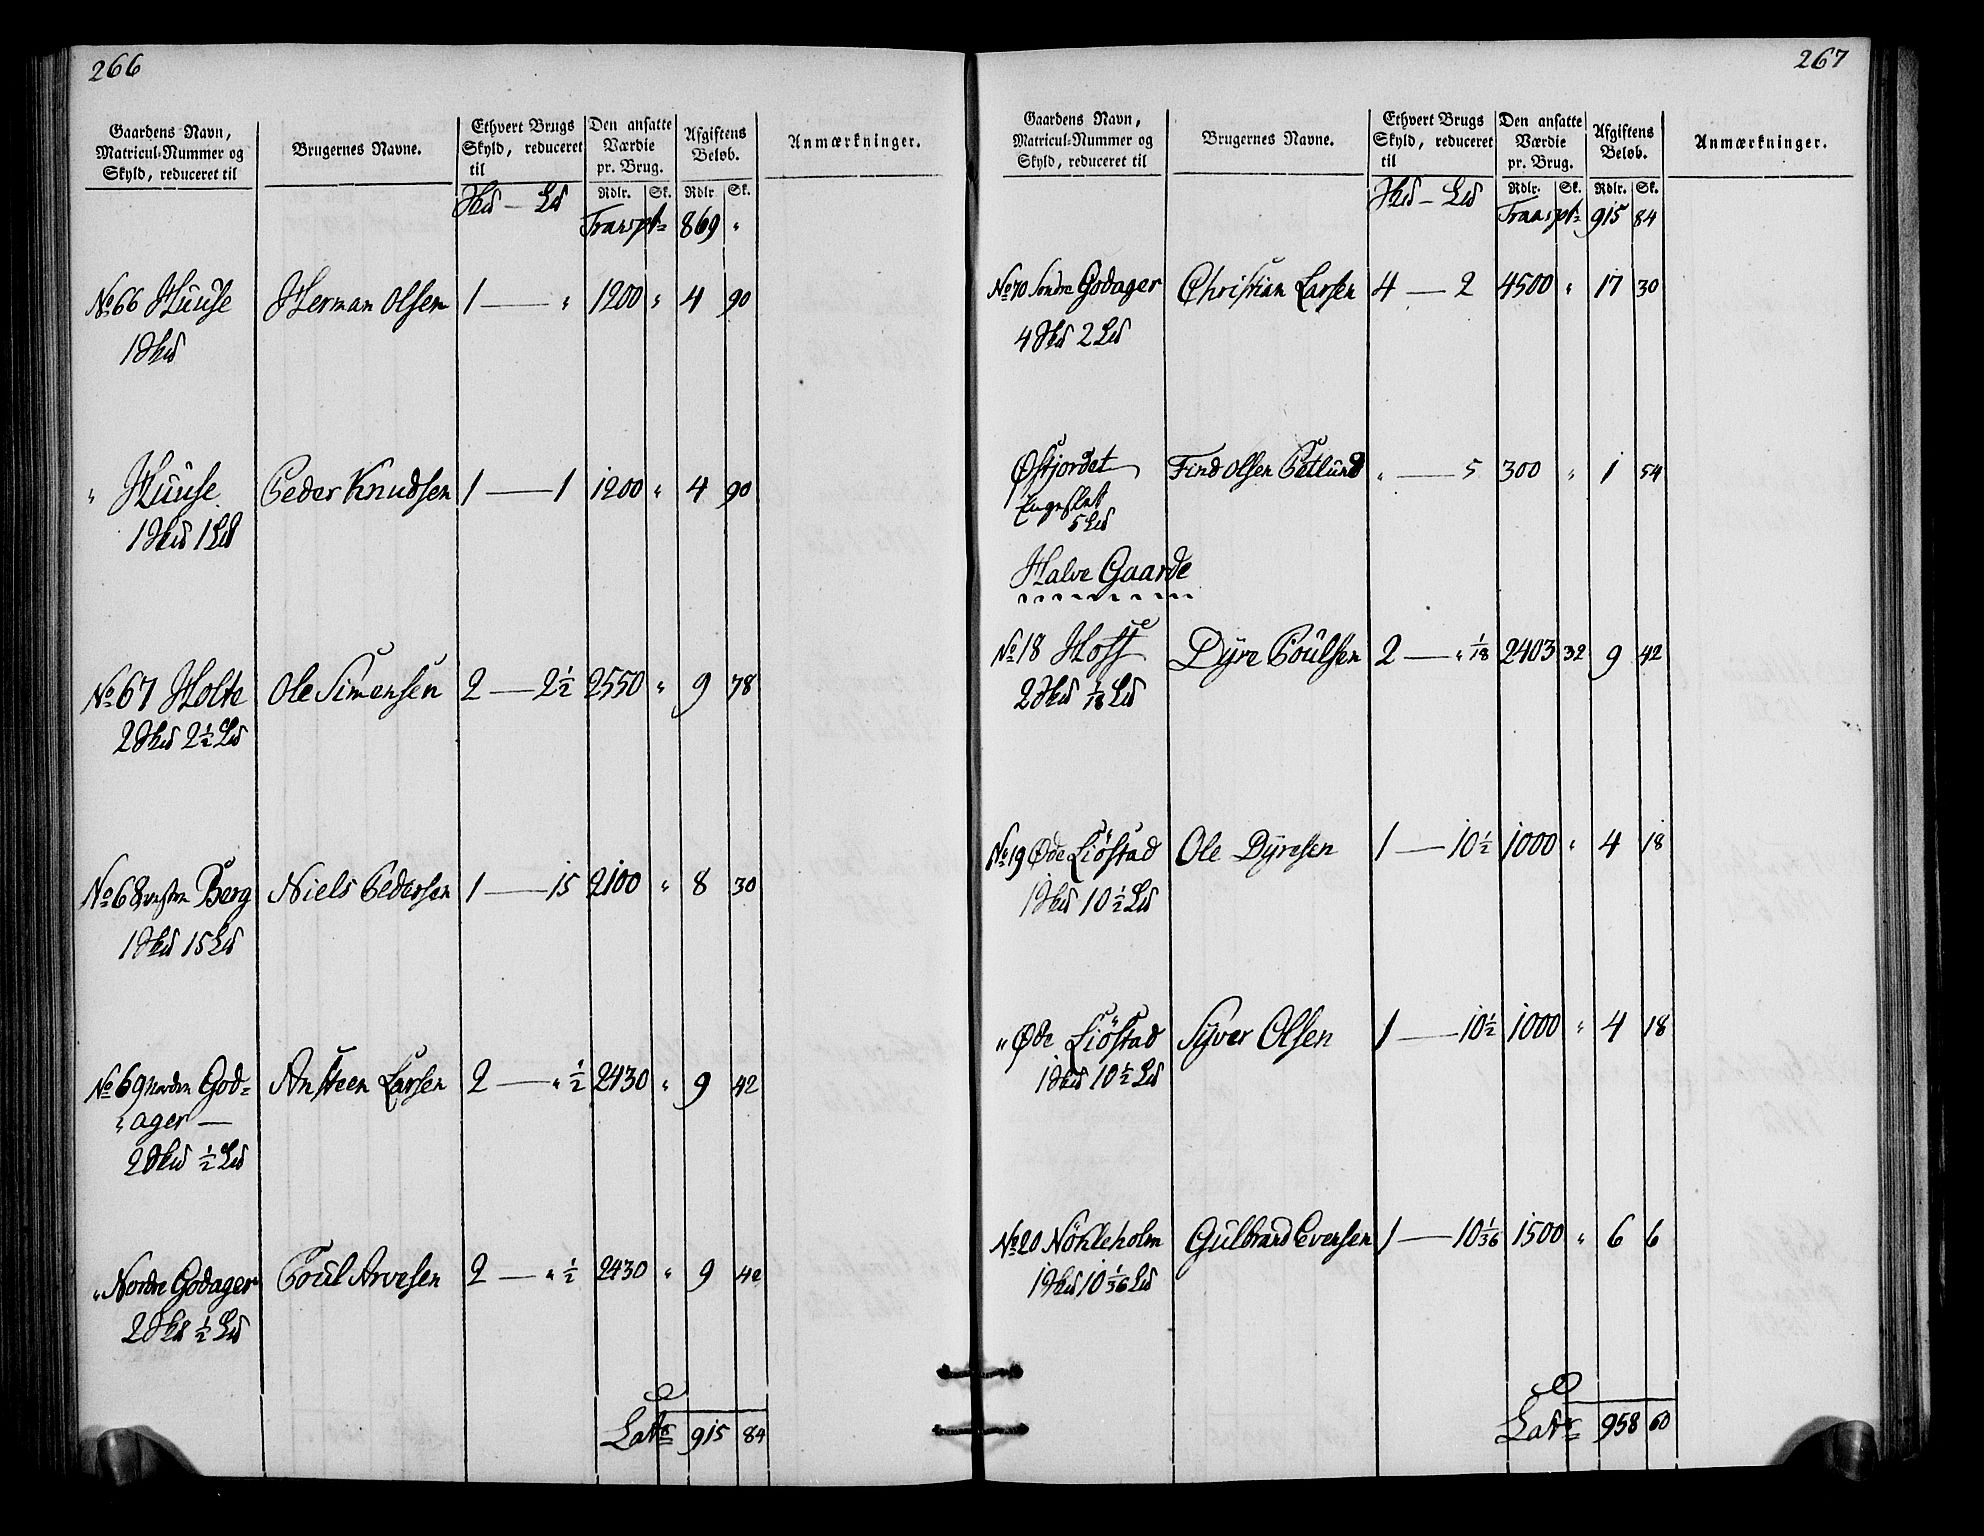 266
Gaardens Navn, Matricul-Nummer og Skyld, reduceret til
Brugernes Navne.
Ethvert Brugs Skyld, reduceret til
Den ansatte Værdie pr. Brug.
Afgiftens Beløb.
Anmærkninger.
Rdlr. Sk. Rdlr Sk.
Hud — Ld
Transpt 869 "
No 66 Huuse Herman Olsen 1 — " 1200 " 4 90
1 Hud
" Huuse Peder Knudsen 1 — 1 1200 " 4 90
1 Hud 1 Ld
No 67 Holte Ole Simensen 2 — 2½ 2550 " 9 78
2 Hud 2½ Ld
No 68 vestre Berg Niels Pedersen 1 — 15 2100 " 8 30
1 Hud 15 Ld
No 69 Nordre God= Ansteen Larsen 2 — " ½ 2430 " 9 42
" ager —
2 Hud ½ Ld
" Nordre Godager Poul Arvesen 2 — " ½ 2430 " 9 42
2 Hud ½ Ld
Lats 915 84
267
Gaardens Navn, Matricul-Nummer og Skyld, reduceret til
Brugernes Navne.
Ethvert Brugs Skyld, reduceret til
Den ansatte Værdie pr. Brug.
Afgiftens Beløb.
Anmærkninger.
Rdlr. Sk. Rdlr. Sk.
Hud — Ld
Transpt 915 84
No 70 Søndre Godager Christian Larsen 4 — 2 4500 " 17 30
4 Hud 2 Ld
Østjordet Find Olsen Petlund " — 5 300 " 1 54
Engeslet
5 Ld
Halve Gaarde
No 18 Hoff Dyre Poulsen 2 — " 1/18 2403 32 9 42
2 Hud 1/18 Ld
No 19 Øde Liöstad Ole Dyresen 1 — 10½ 1000 " 4 18
1 Hud 10½ Ld
" Øde Liöstad Syver Olsen 1 — 10½ 1000 " 4 18
1 Hud 10½ Ld
No 20 Nöhleholm Gulbrand Evensen 1 — 10 1/36 1500 " 6 6
1 Hud 10 1/36 Ld
Lats 958 60